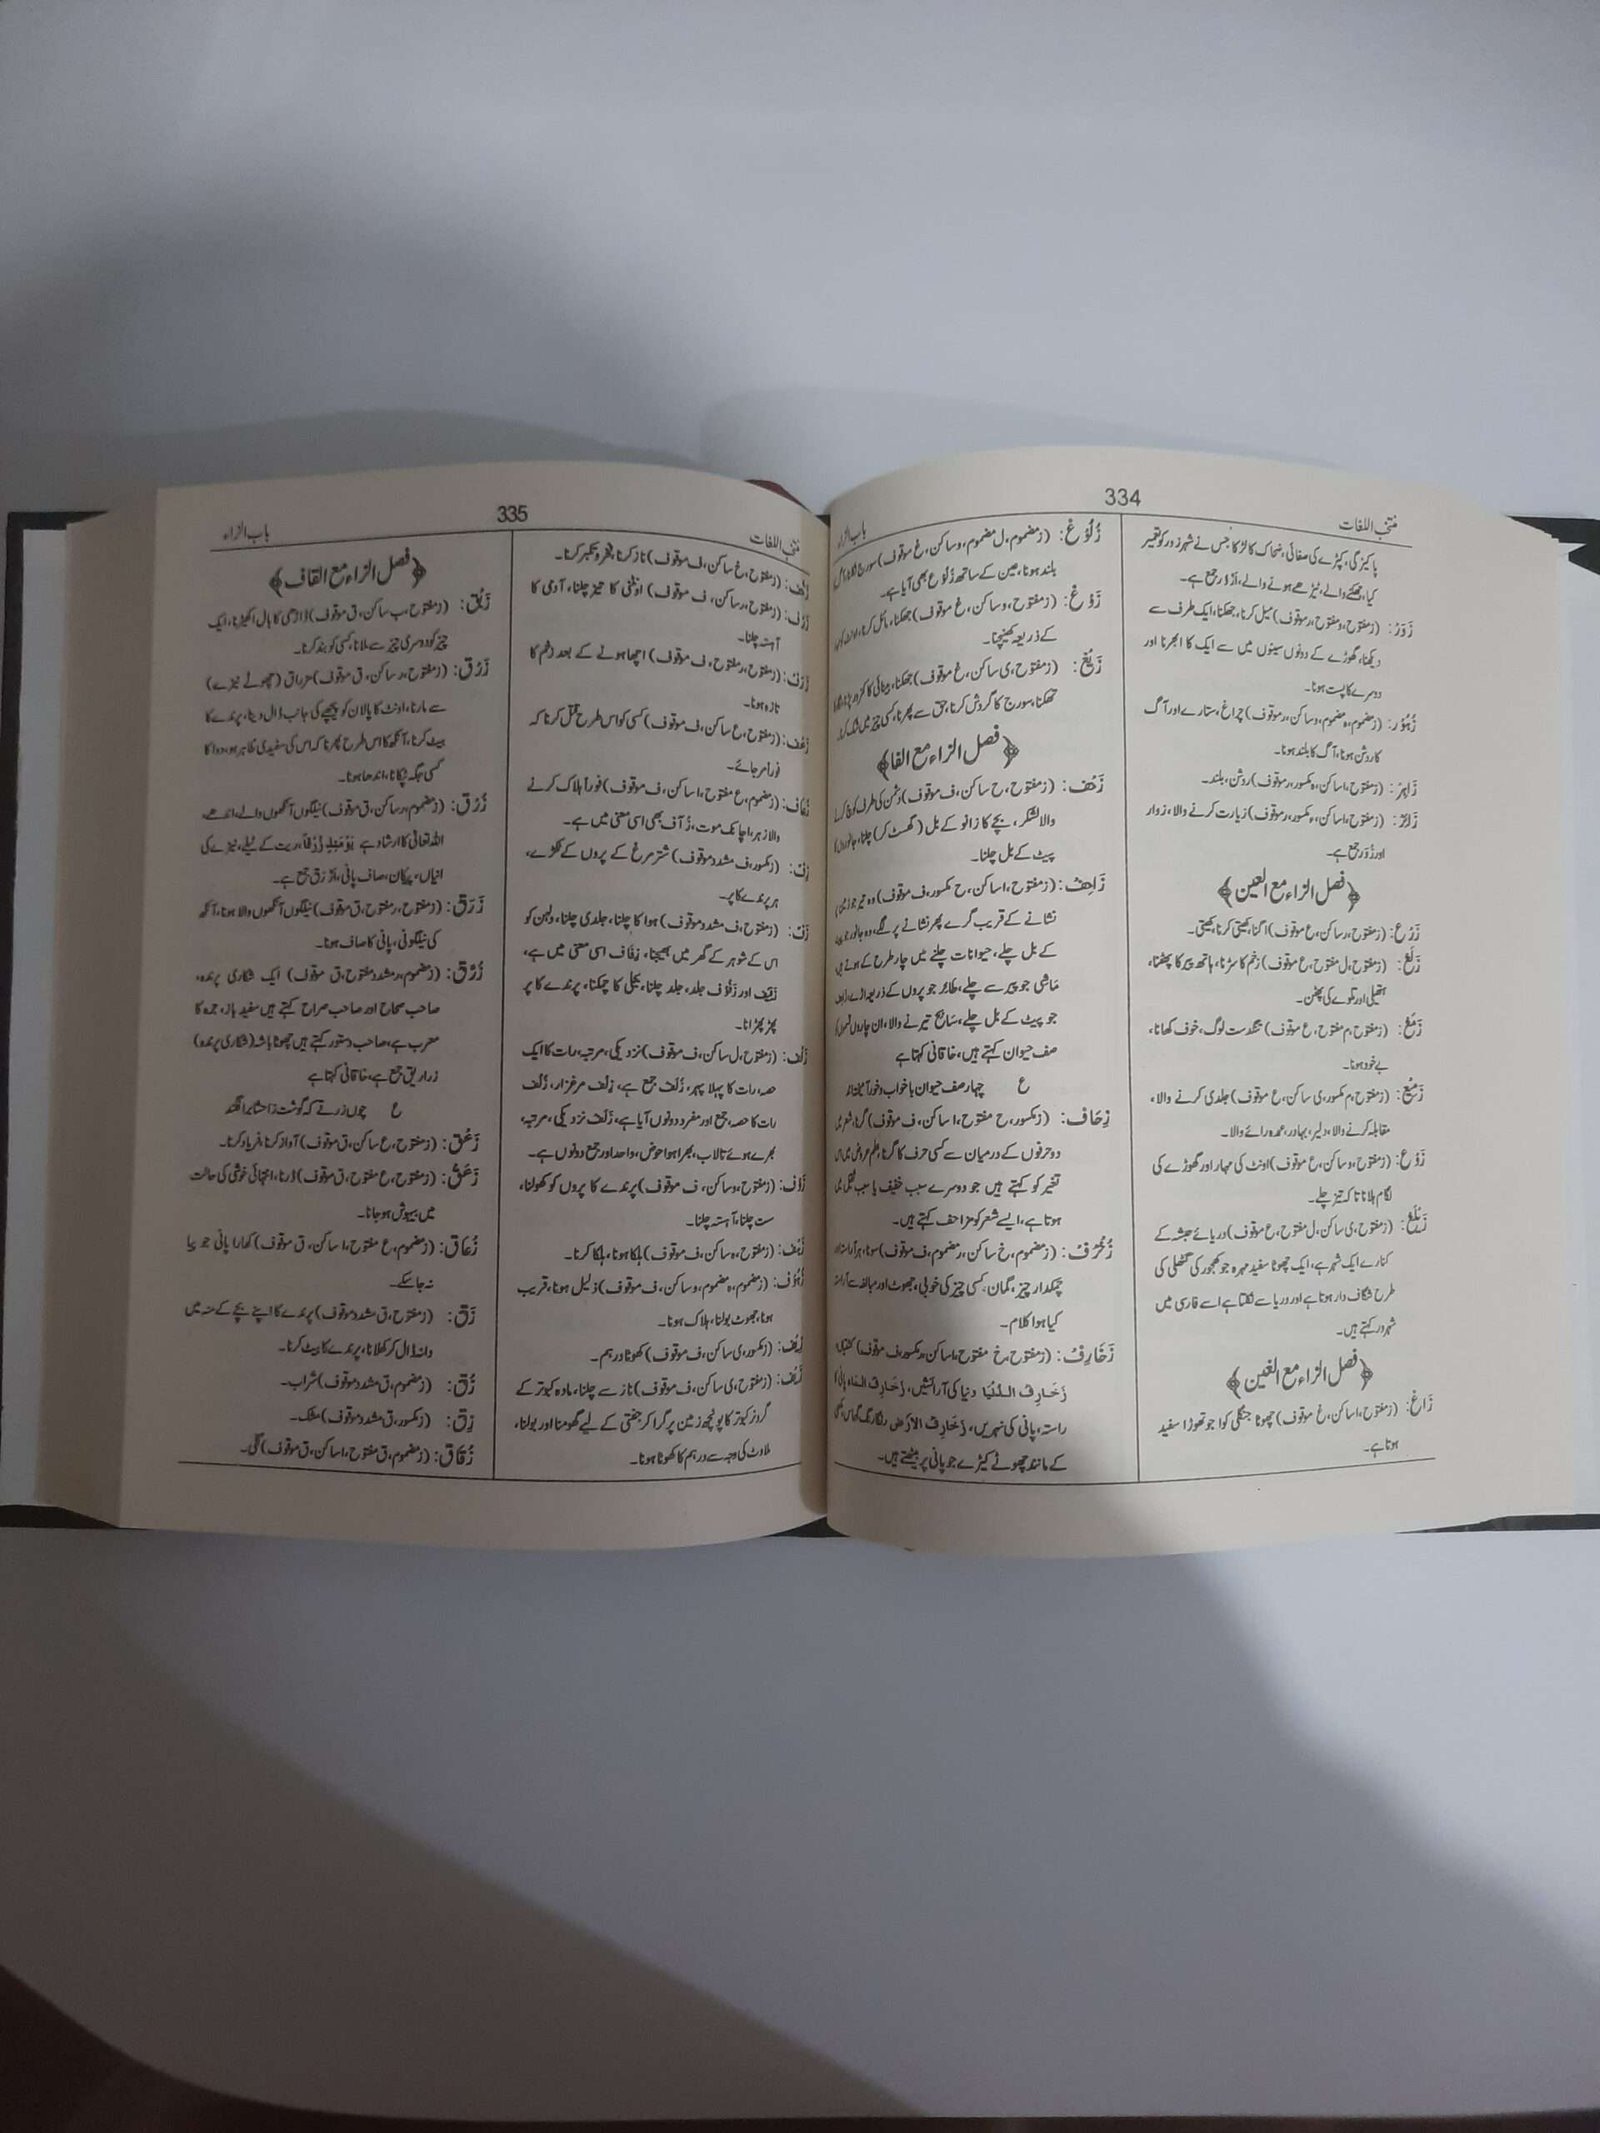 منتخب اللغات
334
باب الزاء
پاکیزگی، کپڑے کی صفائی، ضحاک کا لڑکا جس نے شہر زور کو تعمیر
کیا، جھکنے والے، ٹیڑھے ہونے والے، اَزْوَر جمع ہے۔
زَوَرْ: (زمفتوح، ومفتوح، رموقوف) میل کرنا، جھکنا، ایک طرف سے
دیکھنا، گھوڑے کے دونوں سینوں میں سے ایک کا ابھرنا اور
دوسرے کا پست ہونا۔
زُہُوْر: (زمضموم، ہ مضموم، وساکن، رموقوف) چراغ، ستارے اور آگ
کا روشن ہونا، آگ کا بلند ہونا۔
زَاہِرْ: (زمفتوح، اساکن، ہ مکسور، رموقوف) روشن، بلند۔
زَائِرْ: (زمفتوح، اساکن، ء مکسور، رموقوف) زیارت کرنے والا، زوار
اور زُوَّر جمع ہے۔
﴿فصل الزاء مع العین﴾
زَرْع: (زمفتوح، رساکن، ع موقوف) اگنا، کھیتی کرنا، کھیتی۔
زَلَعْ: (زمفتوح، ل مفتوح، ع موقوف) زخم کا سڑنا، ہاتھ پیر کا پھٹنا،
ہتھیلی اور تلوے کی پھٹن۔
زَمَعْ: (زمفتوح، م مفتوح، ع موقوف) تنگدست لوگ، خوف کھانا،
بے خود ہونا۔
زَمِیْعْ: (زمفتوح، م مکسور، ی ساکن، ع موقوف) جلدی کرنے والا،
مقابلہ کرنے والا، دلیر، بہادر، عمدہ رائے والا۔
زَوْع: (زمفتوح، وساکن، ع موقوف) اونٹ کی مہار اور گھوڑے کی
لگام ہلانا تاکہ تیز چلے۔
زَیْلَعْ: (زمفتوح، ی ساکن، ل مفتوح، ع موقوف) دریائے حبشہ کے
کنارے ایک شہر ہے، ایک چھوٹا سفید مہرہ جو کھجور کی گٹھلی کی
طرح شگاف دار ہوتا ہے اور دریا سے نکلتا ہے اسے فارسی میں
کہتے ہیں۔
﴿فصل الزاء مع الغین﴾
زَاغْ: (زمفتوح، اساکن، غ موقوف) چھوٹا جنگلی کوا جو تھوڑا سفید
ہوتا ہے۔
زُلُوْغْ: (زمضموم، ل مضموم، وساکن، غ موقوف) سورج نکلنا،
بلند ہونا، عین کے ساتھ زُلُوع بھی آیا ہے۔
زَوْغْ: (زمفتوح، وساکن، غ موقوف) جھکنا، مائل کرنا، اونٹ کو
کے ذریعہ کھینچنا۔
زَیْغْ: (زمفتوح، ی ساکن، غ موقوف) جھکنا، بینائی کا کمزور پڑنا
تھکنا، سورج کا گردش کرنا، حق سے پھرنا، کسی چیز میں شک کرنا۔
﴿فصل الزاء مع الفا﴾
زَحْف: (زمفتوح، ح ساکن، ف موقوف) دشمن کی طرف کوچ کرنے
والا لشکر، بچے کا زانو کے بل (گھسٹ کر) چلنا، جانوروں کا
پیٹ کے بل چلنا۔
زَاحِفْ: (زمفتوح، اساکن، ح مکسور، ف موقوف) وہ تیر جو زمین
نشانے کے قریب گرے پھر نشانے پر لگے، وہ جانور جو پیٹ
کے بل چلے، حیوانات چلنے میں چار طرح کے ہوتے ہیں
مَاشِی جو پیر سے چلے، طَائِر جو پروں کے ذریعہ اڑے، زاحف
جو پیٹ کے بل چلے، سَابِح تیرنے والا، ان چاروں قسموں کو
صف حیوان کہتے ہیں، خاقانی کہتا ہے
ع چہار صف حیوان با خواب و خور
زِحَاف: (زمکسور، ح مفتوح، اساکن، ف موقوف) گرنا، شعر میں
دو حرفوں کے درمیان سے کسی حرف کا گرنا، علم عروض میں اس
تغیر کو کہتے ہیں جو دوسرے سبب خفیف یا سبب ثقیل میں
ہوتا ہے، ایسے شعر کو مزاحف کہتے ہیں۔
زُخْرُفْ: (زمضموم، خ ساکن، رمضموم، ف موقوف) سونا، ہر آراستہ اور
چمکدار چیز، گمان، کسی چیز کی خوبی، جھوٹ اور مبالغہ سے آراستہ
کیا ہوا کلام۔
زَخَارِفْ: (زمفتوح، خ مفتوح، اساکن، رمکسور، ف موقوف) کشتیاں،
زَخَارِفُ الدُّنْیَا دنیا کی آرائشیں، زَخَارِفُ الْمَاء پانی کا
راستہ، پانی کی نہریں، زَخَارِفُ الْاَرْض رنگا رنگ گھاس، مکھی
کے مانند چھوٹے کیڑے جو پانی پر بیٹھتے ہیں۔
منتخب اللغات
335
باب الزاء
(زمفتوح، غ ساکن، ف موقوف) ناز کرنا، فخر و تکبر کرنا۔
زَرْف: (زمفتوح، رساکن، ف موقوف) اونٹنی کا تیز چلنا، آدمی کا
آہستہ چلنا۔
زَرَف: (زمفتوح، رمفتوح، ف موقوف) اچھا ہونے کے بعد زخم کا
تازہ ہونا۔
زَعْف: (زمفتوح، ع ساکن، ف موقوف) کسی کو اس طرح قتل کرنا کہ
فوراً مر جائے۔
زُعَاف: (زمضموم، ع مفتوح، اساکن، ف موقوف) فوراً ہلاک کرنے
والا زہر، اچانک موت، زُآف بھی اسی معنی میں ہے۔
زِفْ: (زمکسور، ف مشدد موقوف) شتر مرغ کے پروں کے ٹکڑے،
ہر پرندے کا پر۔
زَفْ: (زمفتوح، ف مشدد موقوف) ہوا کا چلنا، جلدی چلنا، دلہن کو
اس کے شوہر کے گھر میں بھیجنا، زِفَاف اسی معنی میں ہے،
زَفِیْف اور زُفُوْف جلد، جلد چلنا، بجلی کا چمکنا، پرندے کا پر
پھڑ پھڑانا۔
زُلَفْ: (زمفتوح، ل ساکن، ف موقوف) نزدیکی، مرتبہ، رات کا ایک
حصہ، رات کا پہلا پہر، زُلَف جمع ہے، زِلْف مرغزار، زُلَف
رات کا حصہ، جمع اور مفرد دونوں آیا ہے، زَلَف نزدیکی، مرتبہ،
بھرے ہوئے تالاب، بھرا ہوا حوض، واحد اور جمع دونوں ہے۔
زَوْف: (زمفتوح، وساکن، ف موقوف) پرندے کا پروں کو کھولنا،
سست چلنا، آہستہ چلنا۔
زَہْف: (زمفتوح، ہ ساکن، ف موقوف) ہلکا ہونا، ہلکا کرنا۔
زُہُوْف: (زمضموم، ہ مضموم، وساکن، ف موقوف) ذلیل ہونا، قریب
ہونا، جھوٹ بولنا، ہلاک ہونا۔
زِیْف: (زمکسور، ی ساکن، ف موقوف) کھوٹا درہم۔
زَیْف: (زمفتوح، ی ساکن، ف موقوف) ناز سے چلنا، مادہ کبوتر کے
گرد نر کبوتر کا پونچھ زمین پر گرا کر جفتی کے لیے گھومنا اور بولنا،
ملاوٹ کی وجہ سے درہم کا کھوٹا ہونا۔
﴿فصل الزاء مع القاف﴾
زَبْق: (زمفتوح، ب ساکن، ق موقوف) ڈاڑھی کا بال اکھیڑنا، ایک
چیز کو دوسری چیز سے ملانا، کسی کو بند کرنا۔
زَرْق: (زمفتوح، رساکن، ق موقوف) مزراق (چھوٹے نیزے)
سے مارنا، اونٹ کا پالان کو پیچھے کی جانب ڈال دینا، پرندے کا
بیٹ کرنا، آنکھ کا اس طرح پھرنا کہ اس کی سفیدی ظاہر ہو، دوا کا
کسی جگہ ٹپکانا، اندھا ہونا۔
زُرْق: (زمضموم، رساکن، ق موقوف) نیلگوں آنکھوں والے، اندھے،
اللہ تعالیٰ کا ارشاد ہے یَوْمَئِذٍ زُرْقًا، ریت کے ٹیلے، نیزے کی
انیاں، پیکان، صاف پانی، اَزْرَق جمع ہے۔
زَرَق: (زمفتوح، رمفتوح، ق موقوف) نیلگوں آنکھوں والا ہونا، آنکھ
کی نیلگونی، پانی کا صاف ہونا۔
زُرَّق: (زمضموم، رمشدد مفتوح، ق موقوف) ایک شکاری پرندہ،
صاحب صحاح اور صاحب صراح کہتے ہیں سفید باز، جرہ کا
معرب ہے، صاحب دستور کہتے ہیں چھوٹا باشہ (شکاری پرندہ)
زراریق جمع ہے، خاقانی کہتا ہے
ع چوں زرتے کہ گوشت ز احشا برافگند
زَعْق: (زمفتوح، ع ساکن، ق موقوف) آواز کرنا، فریاد کرنا۔
زَعَقْ: (زمفتوح، ع مفتوح، ق موقوف) ڈرنا، انتہائی خوشی کی حالت
میں بیہوش ہو جانا۔
زُعَاق: (زمضموم، ع مفتوح، اساکن، ق موقوف) کھارا پانی جو پیا
نہ جا سکے۔
زَق: (زمفتوح، ق مشدد موقوف) پرندے کا اپنے بچے کے منہ میں
دانہ ڈال کر کھلانا، پرندے کا بیٹ کرنا۔
زُق: (زمضموم، ق مشدد موقوف) شراب۔
زِق: (زمکسور، ق مشدد موقوف) مشک۔
زُقَاق: (زمضموم، ق مفتوح، اساکن، ق موقوف) گلی۔